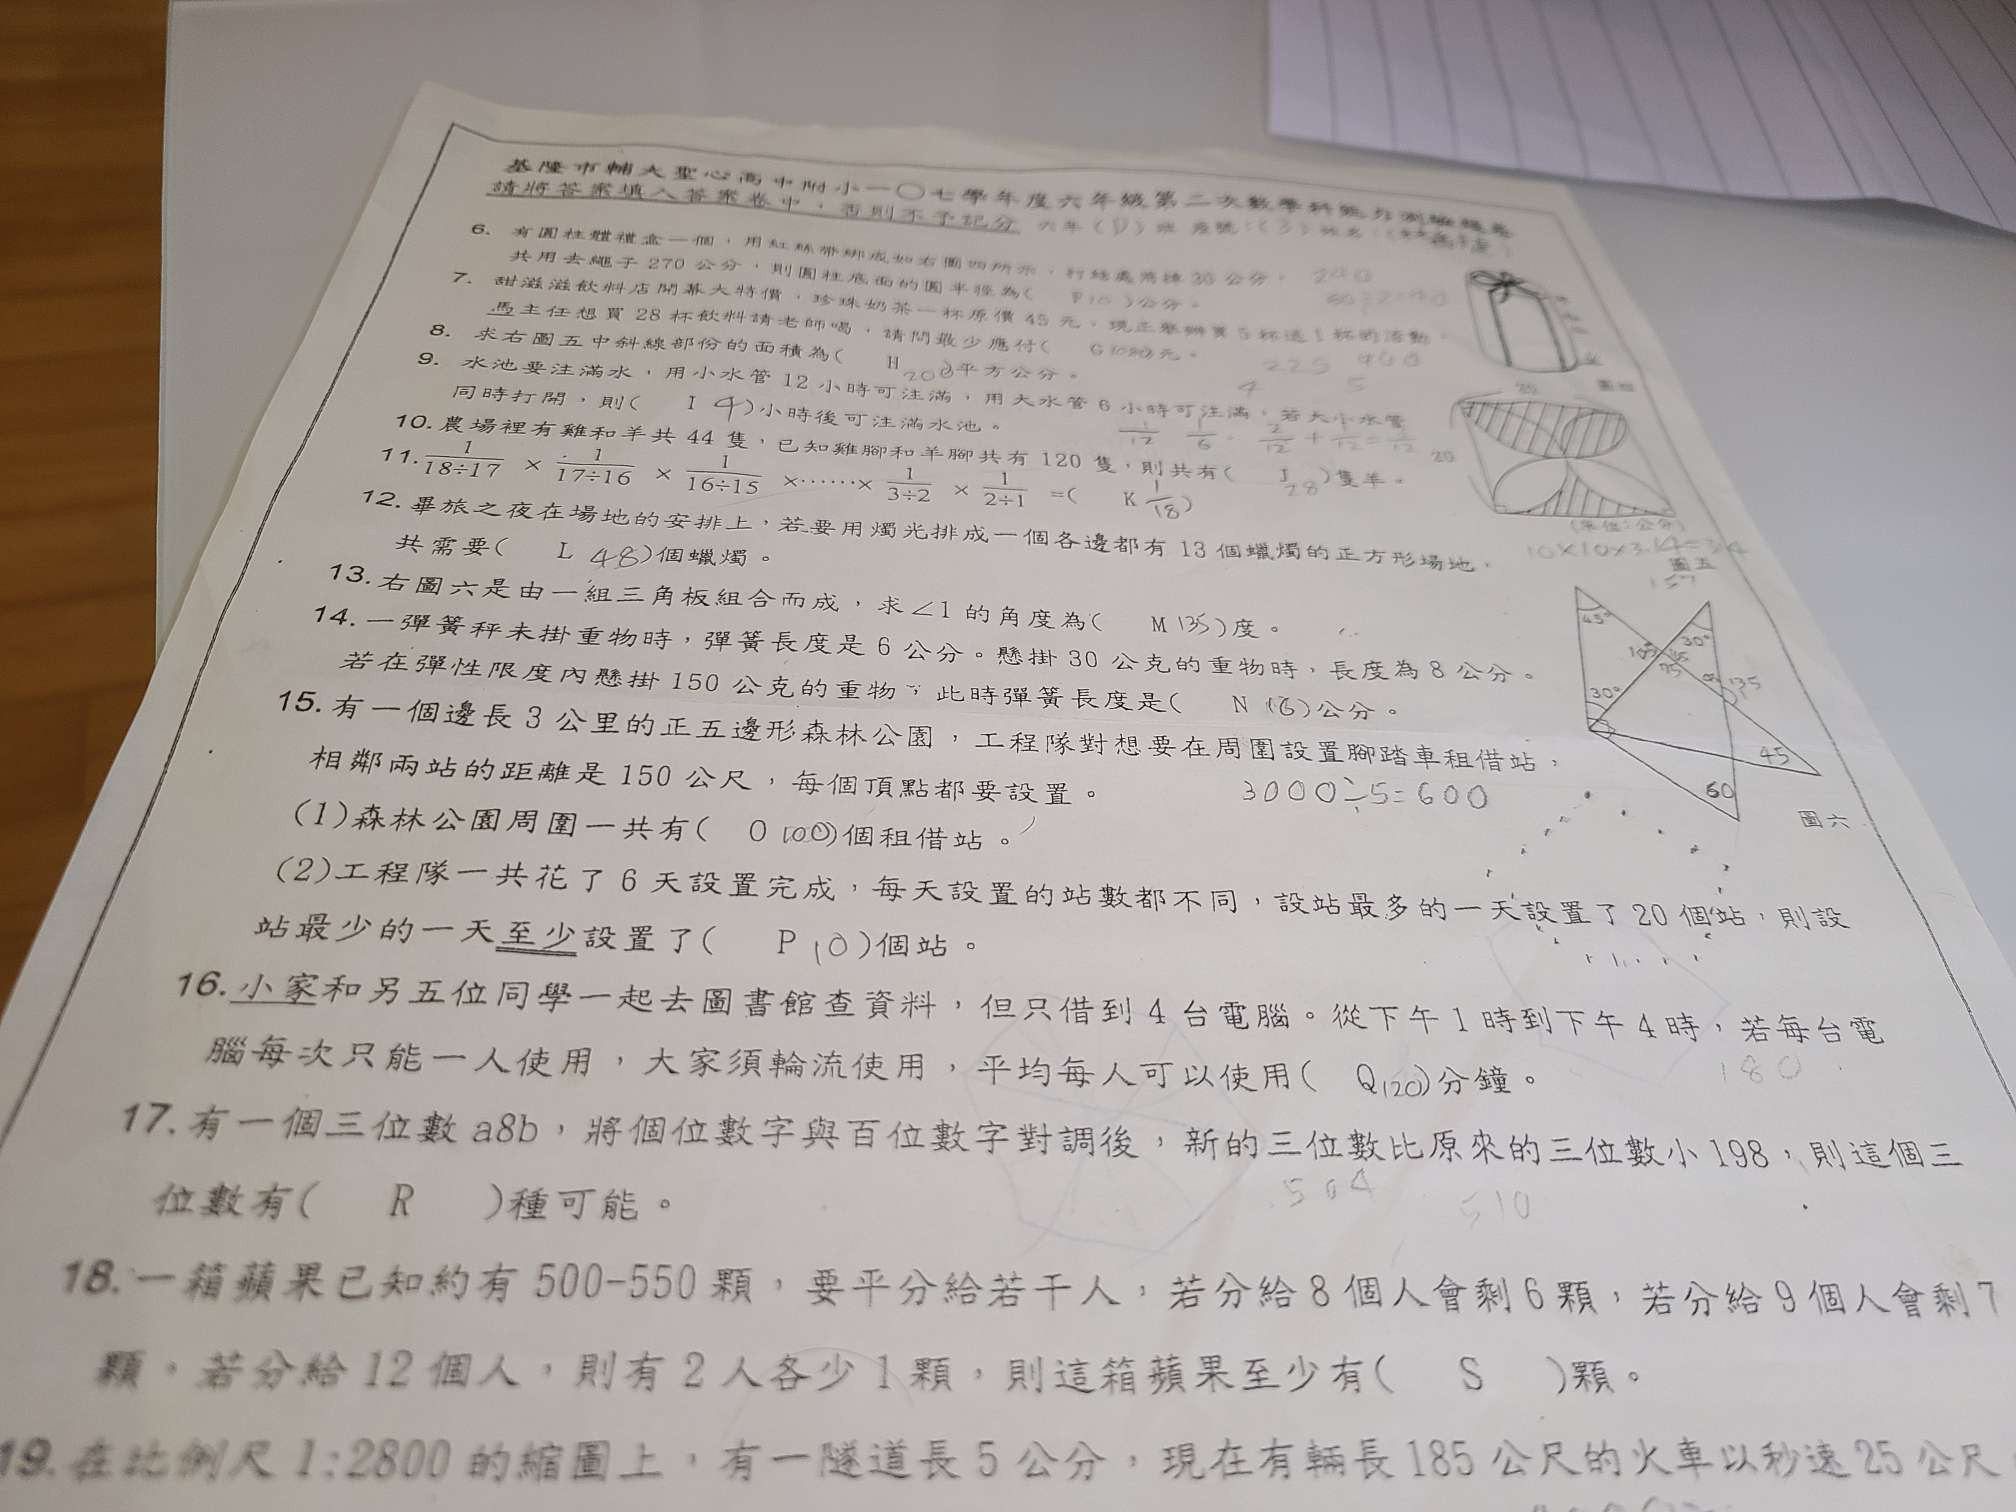 基隆市輔大聖心高中附小一○七學年度六年級第二次數學科能力測驗題卷
請將答案填入答案卷中,否則不予記分 六年( )班 座號:( 3 )姓名:(
6. 有圓柱體禮盒一個,用紅絲帶綁成如右圖四所示,打結處需繩30公分, 240
共用去繩子 270 公分,則圓柱底面的圓半徑為( F10 )公分。
7. 甜滋滋飲料店開幕大特價,珍珠奶茶一杯原價 45 元,現正舉辦買 5 杯送 1 杯的活動,
馬主任想買 28 杯飲料請老師喝,請問最少應付( G1080)元。
225 900
8. 求右圖五中斜線部份的面積為( H 200)平方公分。
4 5
9. 水池要注滿水,用小水管 12 小時可注滿,用大水管 6 小時可注滿,若大小水管
同時打開,則( I 4 )小時後可注滿水池。
1/12 1/6 2/12 + 1/12 = 3/12
10. 農場裡有雞和羊共 44 隻,已知雞腳和羊腳共有 120 隻,則共有( J 28 )隻羊。
11. 1/18÷17 × 1/17÷16 × 1/16÷15 ×……× 1/3÷2 × 1/2÷1 =( K 1/18 )
12. 畢旅之夜在場地的安排上,若要用燭光排成一個各邊都有 13 個蠟燭的正方形場地,
共需要( L 48 )個蠟燭。
20
圖四
20
(單位:公分)
10×10×3.14=314
圖五
157
13. 右圖六是由一組三角板組合而成,求∠1 的角度為( M 135 )度。
14. 一彈簧秤未掛重物時,彈簧長度是 6 公分。懸掛 30 公克的重物時,長度為 8 公分。
若在彈性限度內懸掛 150 公克的重物,此時彈簧長度是( N 16 )公分。
45°
30°
105
75
135
30°
45
60
圖六
15. 有一個邊長 3 公里的正五邊形森林公園,工程隊對想要在周圍設置腳踏車租借站,
相鄰兩站的距離是 150 公尺,每個頂點都要設置。 3000÷5=600
(1)森林公園周圍一共有( O 100 )個租借站。
(2)工程隊一共花了 6 天設置完成,每天設置的站數都不同,設站最多的一天設置了 20 個站,則設
站最少的一天至少設置了( P 10 )個站。
16. 小家和另五位同學一起去圖書館查資料,但只借到 4 台電腦。從下午 1 時到下午 4 時,若每台電
腦每次只能一人使用,大家須輪流使用,平均每人可以使用( Q120 )分鐘。 180
17. 有一個三位數 a8b,將個位數字與百位數字對調後,新的三位數比原來的三位數小 198,則這個三
位數有( R )種可能。 504 510
18. 一箱蘋果已知約有 500-550 顆,要平分給若干人,若分給 8 個人會剩 6 顆,若分給 9 個人會剩 7
顆,若分給 12 個人,則有 2 人各少 1 顆,則這箱蘋果至少有( S )顆。
19. 在比例尺 1:2800 的縮圖上,有一隧道長 5 公分,現在有輛長 185 公尺的火車以秒速 25 公尺